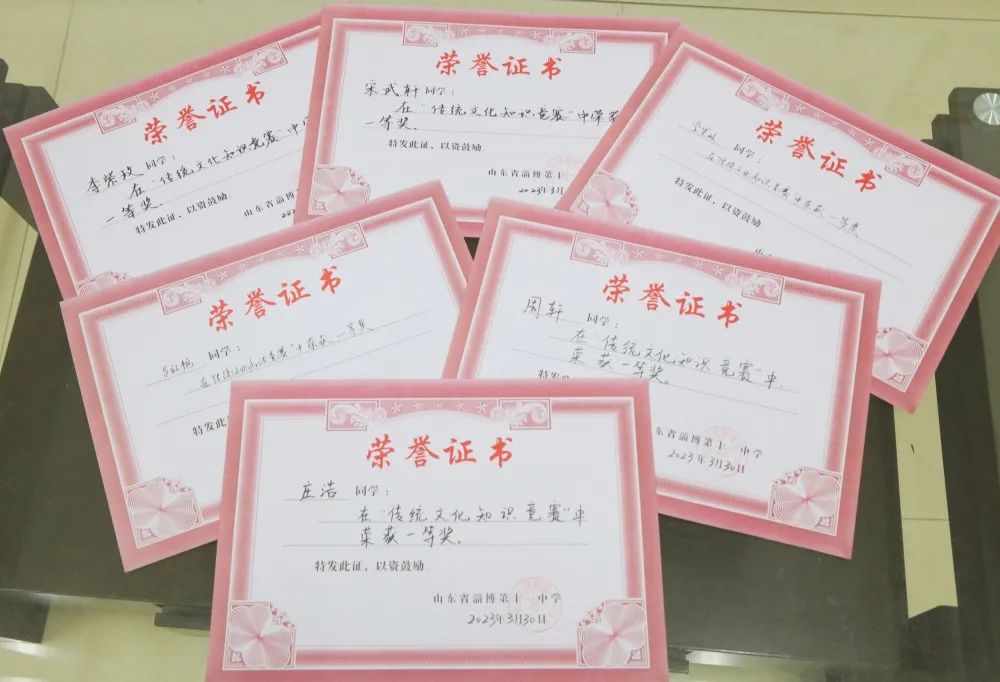 荣誉证书
李紫玟 同学：
在"传统文化知识竞赛"中
一等奖.
特发此证，以资鼓励
山东省淄博
荣誉证书
宋武轩 同学：
在"传统文化知识竞赛"中荣
一等奖.
特发此证，以资鼓励
山东省淄博第十
2023年3月
荣誉证书
同学：
在传统文化知识竞赛中荣获一等奖
特发此证，以资鼓励
荣誉证书
同学：
在传统文化知识竞赛"中荣获一等奖
特发此
荣誉证书
周轩 同学：
在"传统文化知识竞赛"中,
荣获一等奖。
东省淄博第十一中学
2023年3月30日
荣誉证书
庄浩 同学：
在"传统文化知识竞赛"中
荣获一等奖。
特发此证，以资鼓励
山东省淄博第十一中学
2023年3月30日